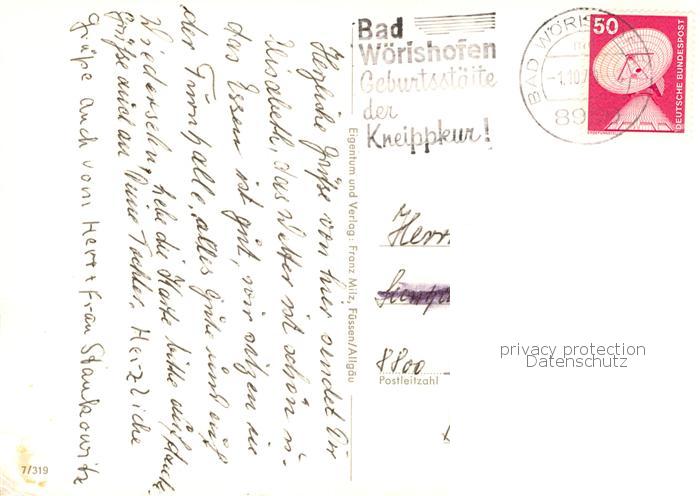 Herzliche Grüße von hier sendet Dir
Elisabeth, das Wetter ist schön u.
das Essen ist gut, wir sitzen in
der Turnhalle, alles Gute und auf
Wiedersehn, hebe die Karte bitte auf
Grüße auch an Deine Tochter. Herzliche
Grüße auch vom Herr + Frau Stankowitz
7/319
Eigentum und Verlag: Franz Milz, Füssen/Allgäu
Bad
Wörishofen
Geburtsstätte
der
Kneippkur!
BAD WÖRIS
-1.10.7
89
50
DEUTSCHE BUNDESPOST
Herr
8800
Postleitzahl
privacy protection
Datenschutz